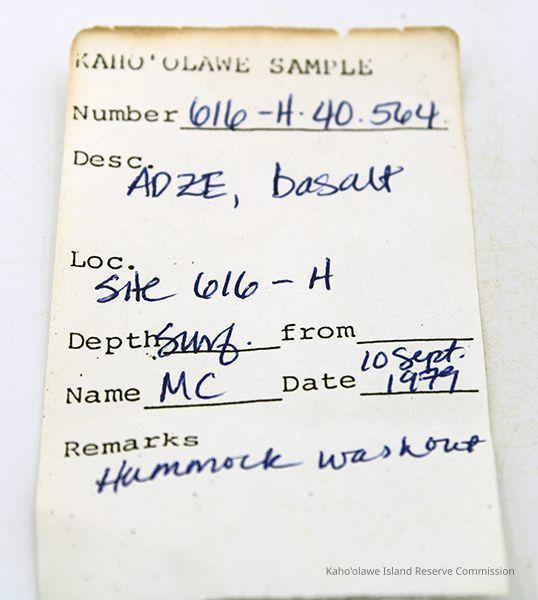 KAHO'OLAWE SAMPLE
Number 616-H.40.564.
Desc.
ADZE, basalt
Loc.
Site 616-H
Depth Surf. from
10 Sept.
Name MC Date 1979
Remarks
Hummock washout
Kaho'olawe Island Reserve Commission